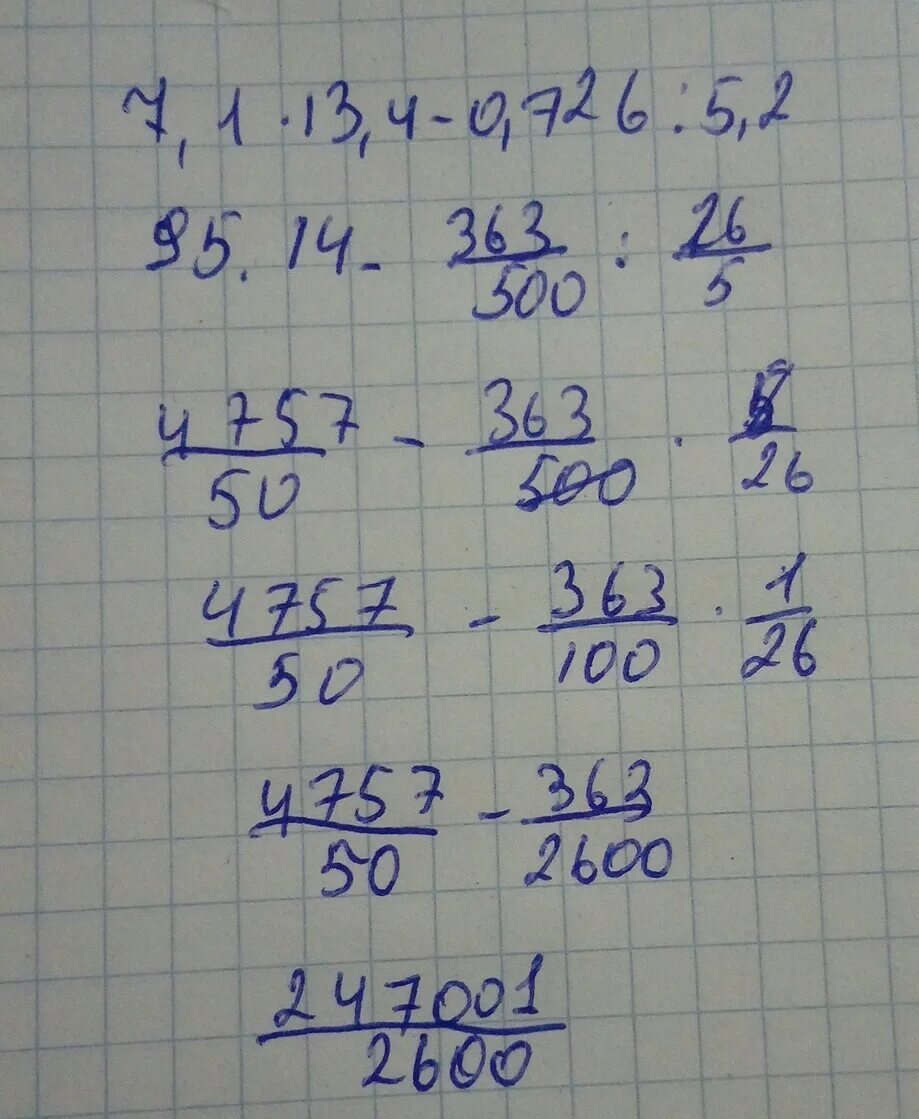 7,1 · 13,4 - 0,726 : 5,2
95.14 - 363/500 : 26/5
4757/50 - 363/500 · 5/26
4757/50 - 363/100 · 1/26
4757/50 - 363/2600
247001/2600